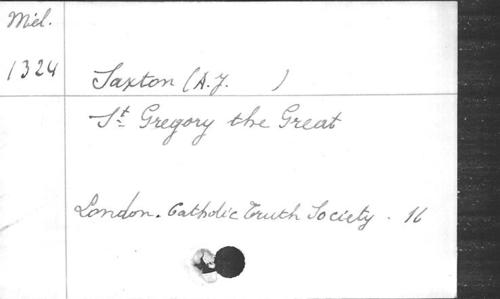 Mél.
1324
Saxton (A. J. )
St Gregory the Great
London. Catholic Truth Society. 16